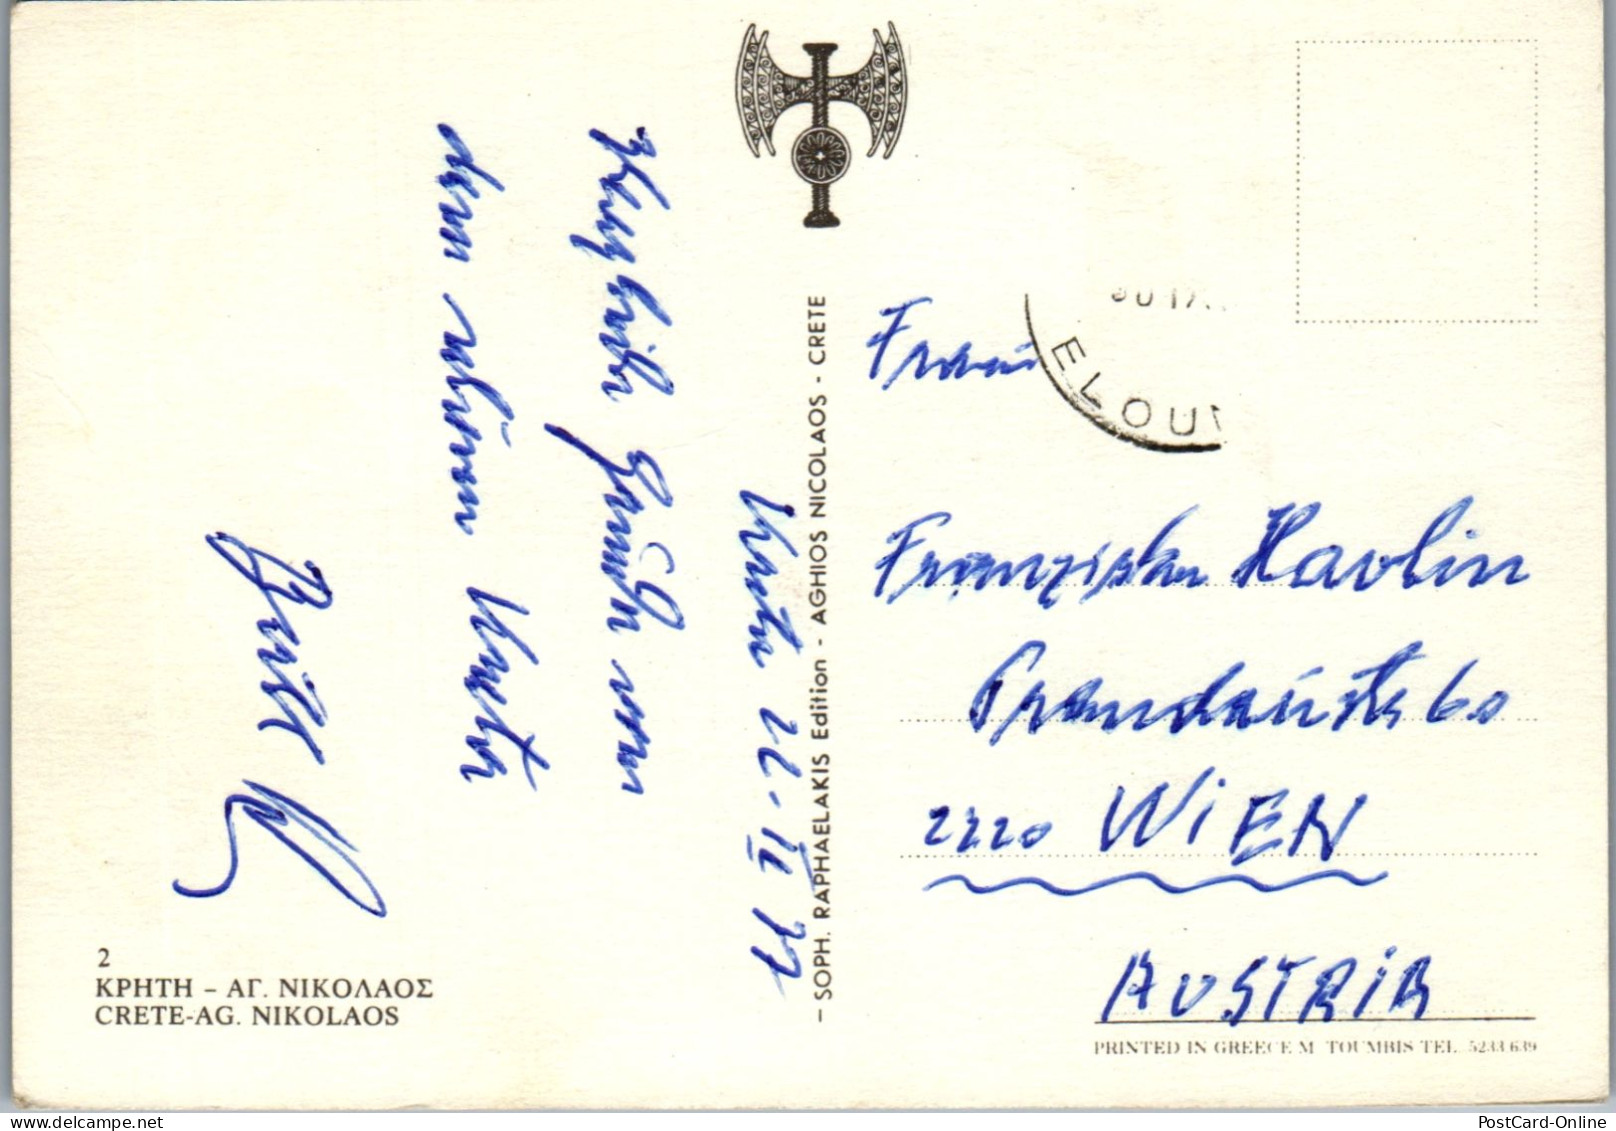 Kreta 22. IV 77
Herzliche Grüße von
dem schönen Kreta
2
ΚΡΗΤΗ – ΑΓ. ΝΙΚΟΛΑΟΣ
CRETE-AG. NIKOLAOS
– SOPH. RAPHAELAKIS Edition - AGHIOS NICOLAOS - CRETE
ELOU
Frau
Franziska Havlin
60
2220 WiEN
AUSTRiA
PRINTED IN GREECE M. TOUMBIS TEL. 5233.639
PostCard-Online